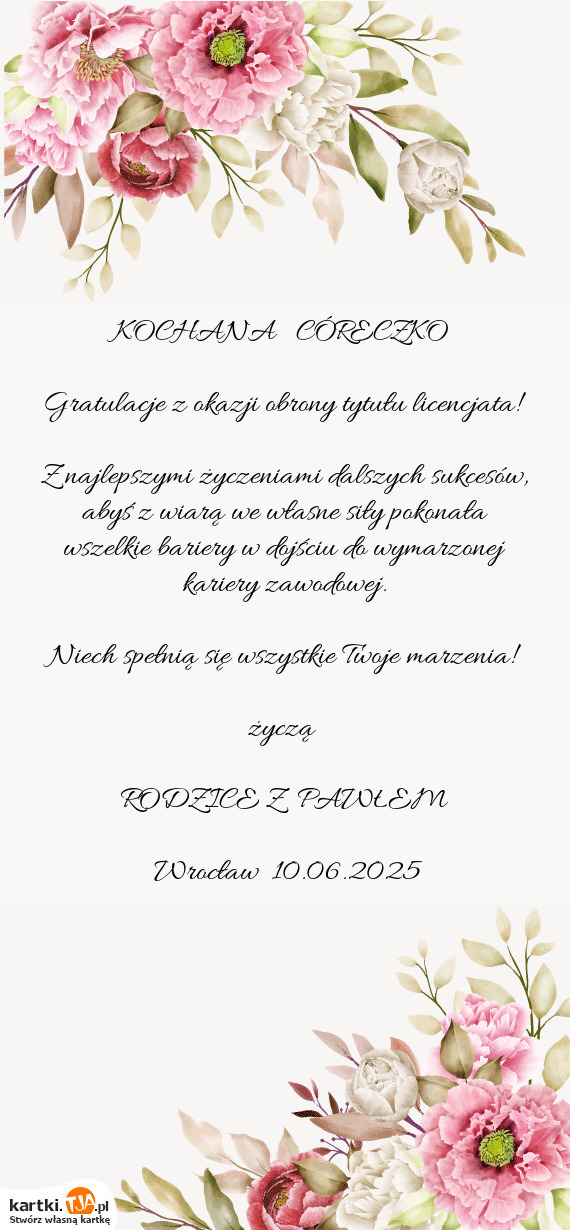 KOCHANA CÓRECZKO
Gratulacje z okazji obrony tytułu licencjata!
Z najlepszymi życzeniami dalszych sukcesów,
abyś z wiarą we własne siły pokonała
wszelkie bariery w dojściu do wymarzonej
kariery zawodowej.
Niech spełnią się wszystkie Twoje marzenia!
życzą
RODZICE Z PAWŁEM
Wrocław 10.06.2025
kartki.TJA.pl
Stwórz własną kartkę